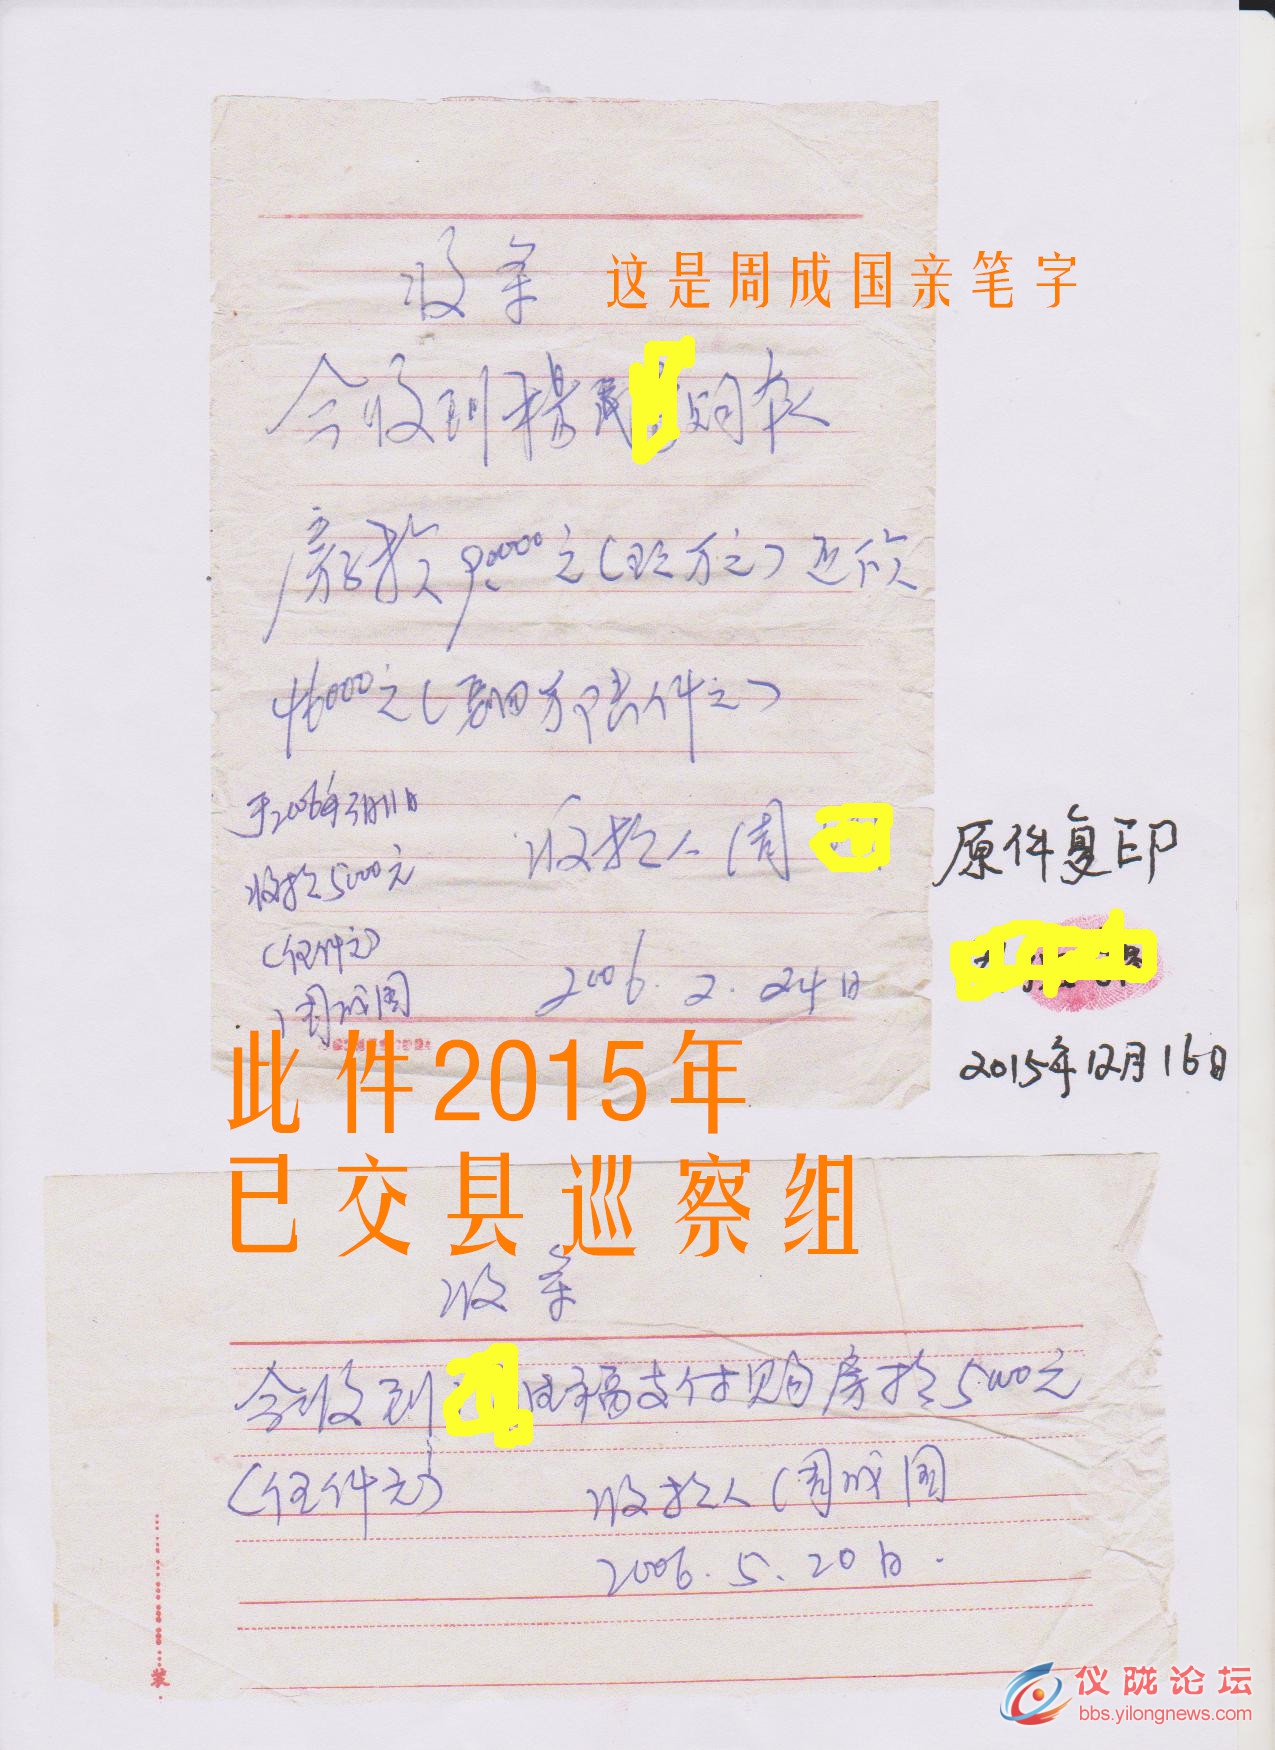 收条
这是周成国亲笔字
今收到杨
房款90000元(玖万元)还欠
46000元(
于2006年3月11日
收款5000元
(伍仟元)
周成国
收款人周
2006.2.24日
原件复印
2015年12月16日
此件2015年
已交县巡察组
收条
今收到 支付购房款5000元
(伍仟元) 收款人(周成国
2006.5.20日.
装
仪陇论坛
bbs.yilongnews.com